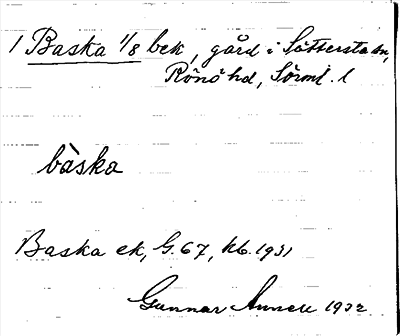 1 Baska 1/8 bek, gård i Sättersta sn,
Rönö hd, Sörml. l
bàska
Baska ek, G. 67, kb. 1931
Gunnar Annell 1932